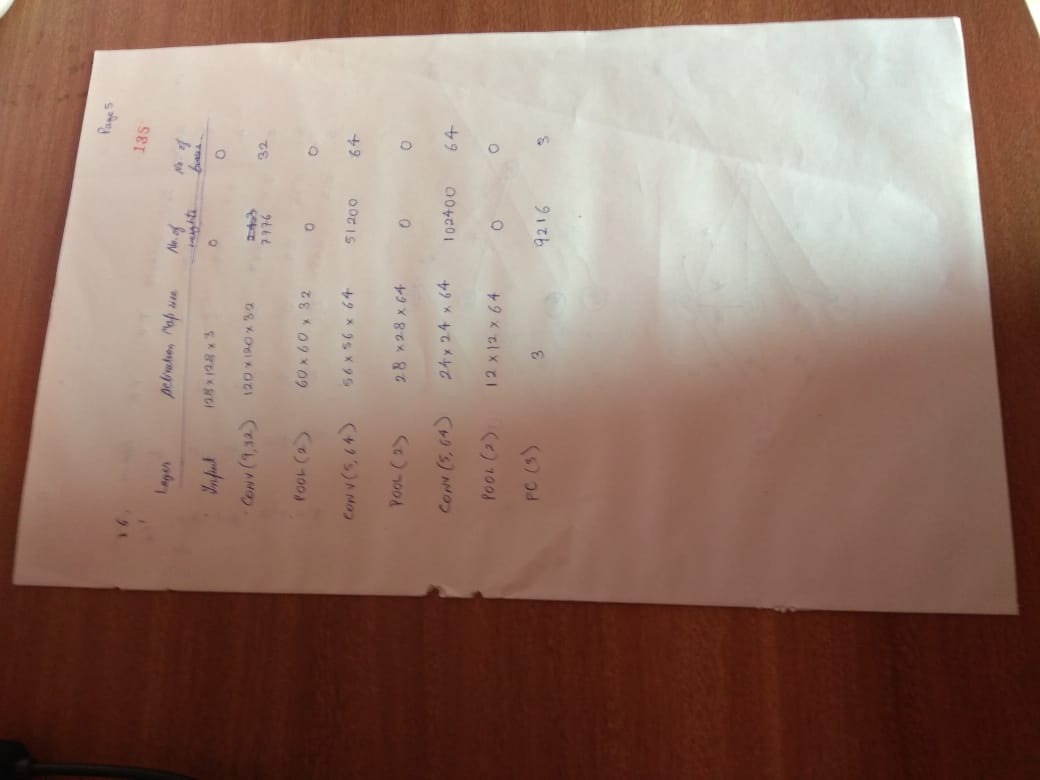 Page 5
135
16.
Layer Activation Map size No. of weights No of biases
Input 128 x 128 x 3 0 0
CONV (9,32) 120 x 120 x 32 7776 32
POOL (2) 60 x 60 x 32 0 0
CONV (5, 64) 56 x 56 x 64 51200 64
POOL (2) 28 x 28 x 64 0 0
CONV (5, 64) 24 x 24 x 64 102400 64
POOL (2) 12 x 12 x 64 0 0
FC (3) 3 9216 3